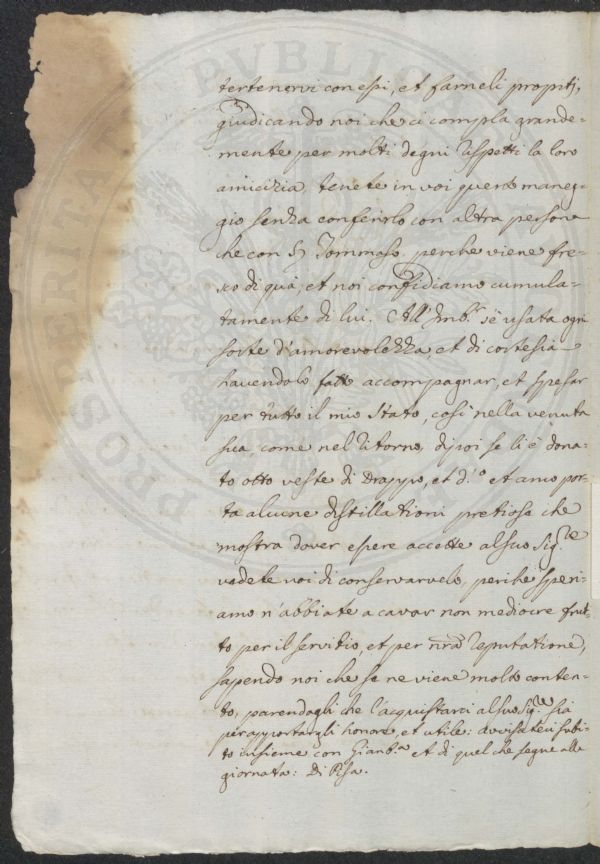 tertenervi con essi, et farneli propitij,
giudicando noi che ci compla grande-
mente per molti degni rispetti la loro
amicizia, tenete in voi questo maneg-
gio senza conferirlo con altra persona
che con Tommaso, perche viene fre-
sco di quà, et noi confidiamo cumula-
tamente di lui. All'Amb.r s'è usata ogni
sorte d'amorevolezza et di cortesia
havendolo fatto accompagnar, et spesar
per tutto il mio Stato, così nella venuta
sua come nel ritorno, di poi se li è dona-
to otto veste di Drappo, et d'.o et anco por-
ta alcune distillationi pretiose che
mostra dover essere accette al suo Sig.re
vedete voi di conservarvelo, perche speri-
amo n'abbiate a cavar non mediocre frut-
to per il servitio, et per nra reputatione,
sapendo noi che se ne viene molto conten-
to, parendogli che l'acquistarci al suo Sig.re sia
per apportargli honore, et utile: avvisateci subi-
to insieme con Gianb.a et di quel che segue alla
giornata: Di Pisa.
PROSPERITATI PVBLICAE